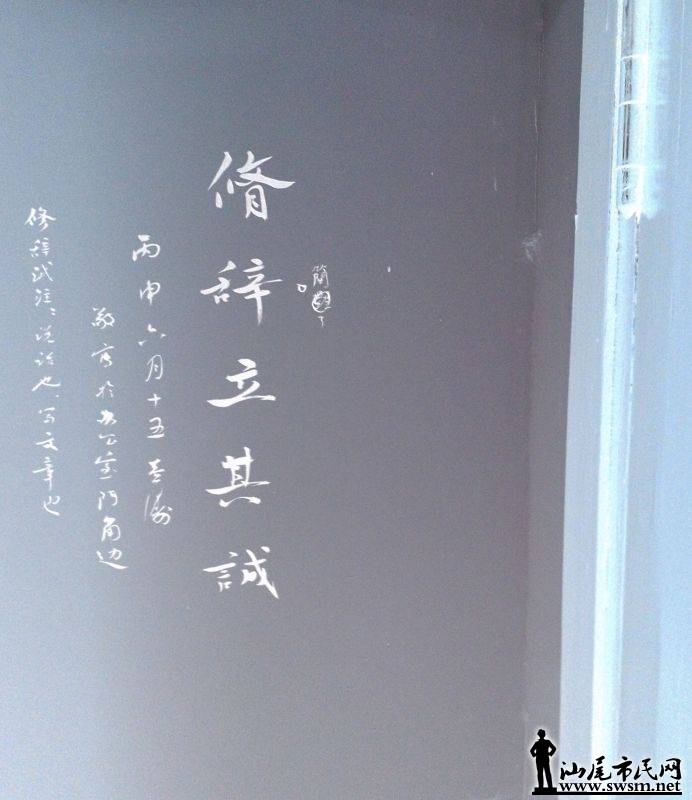 脩辞立其誠
丙申六月十五
敬寫於办公室门角边
修辞試注、说话也、写文章也
汕尾市民网
www.swsm.net